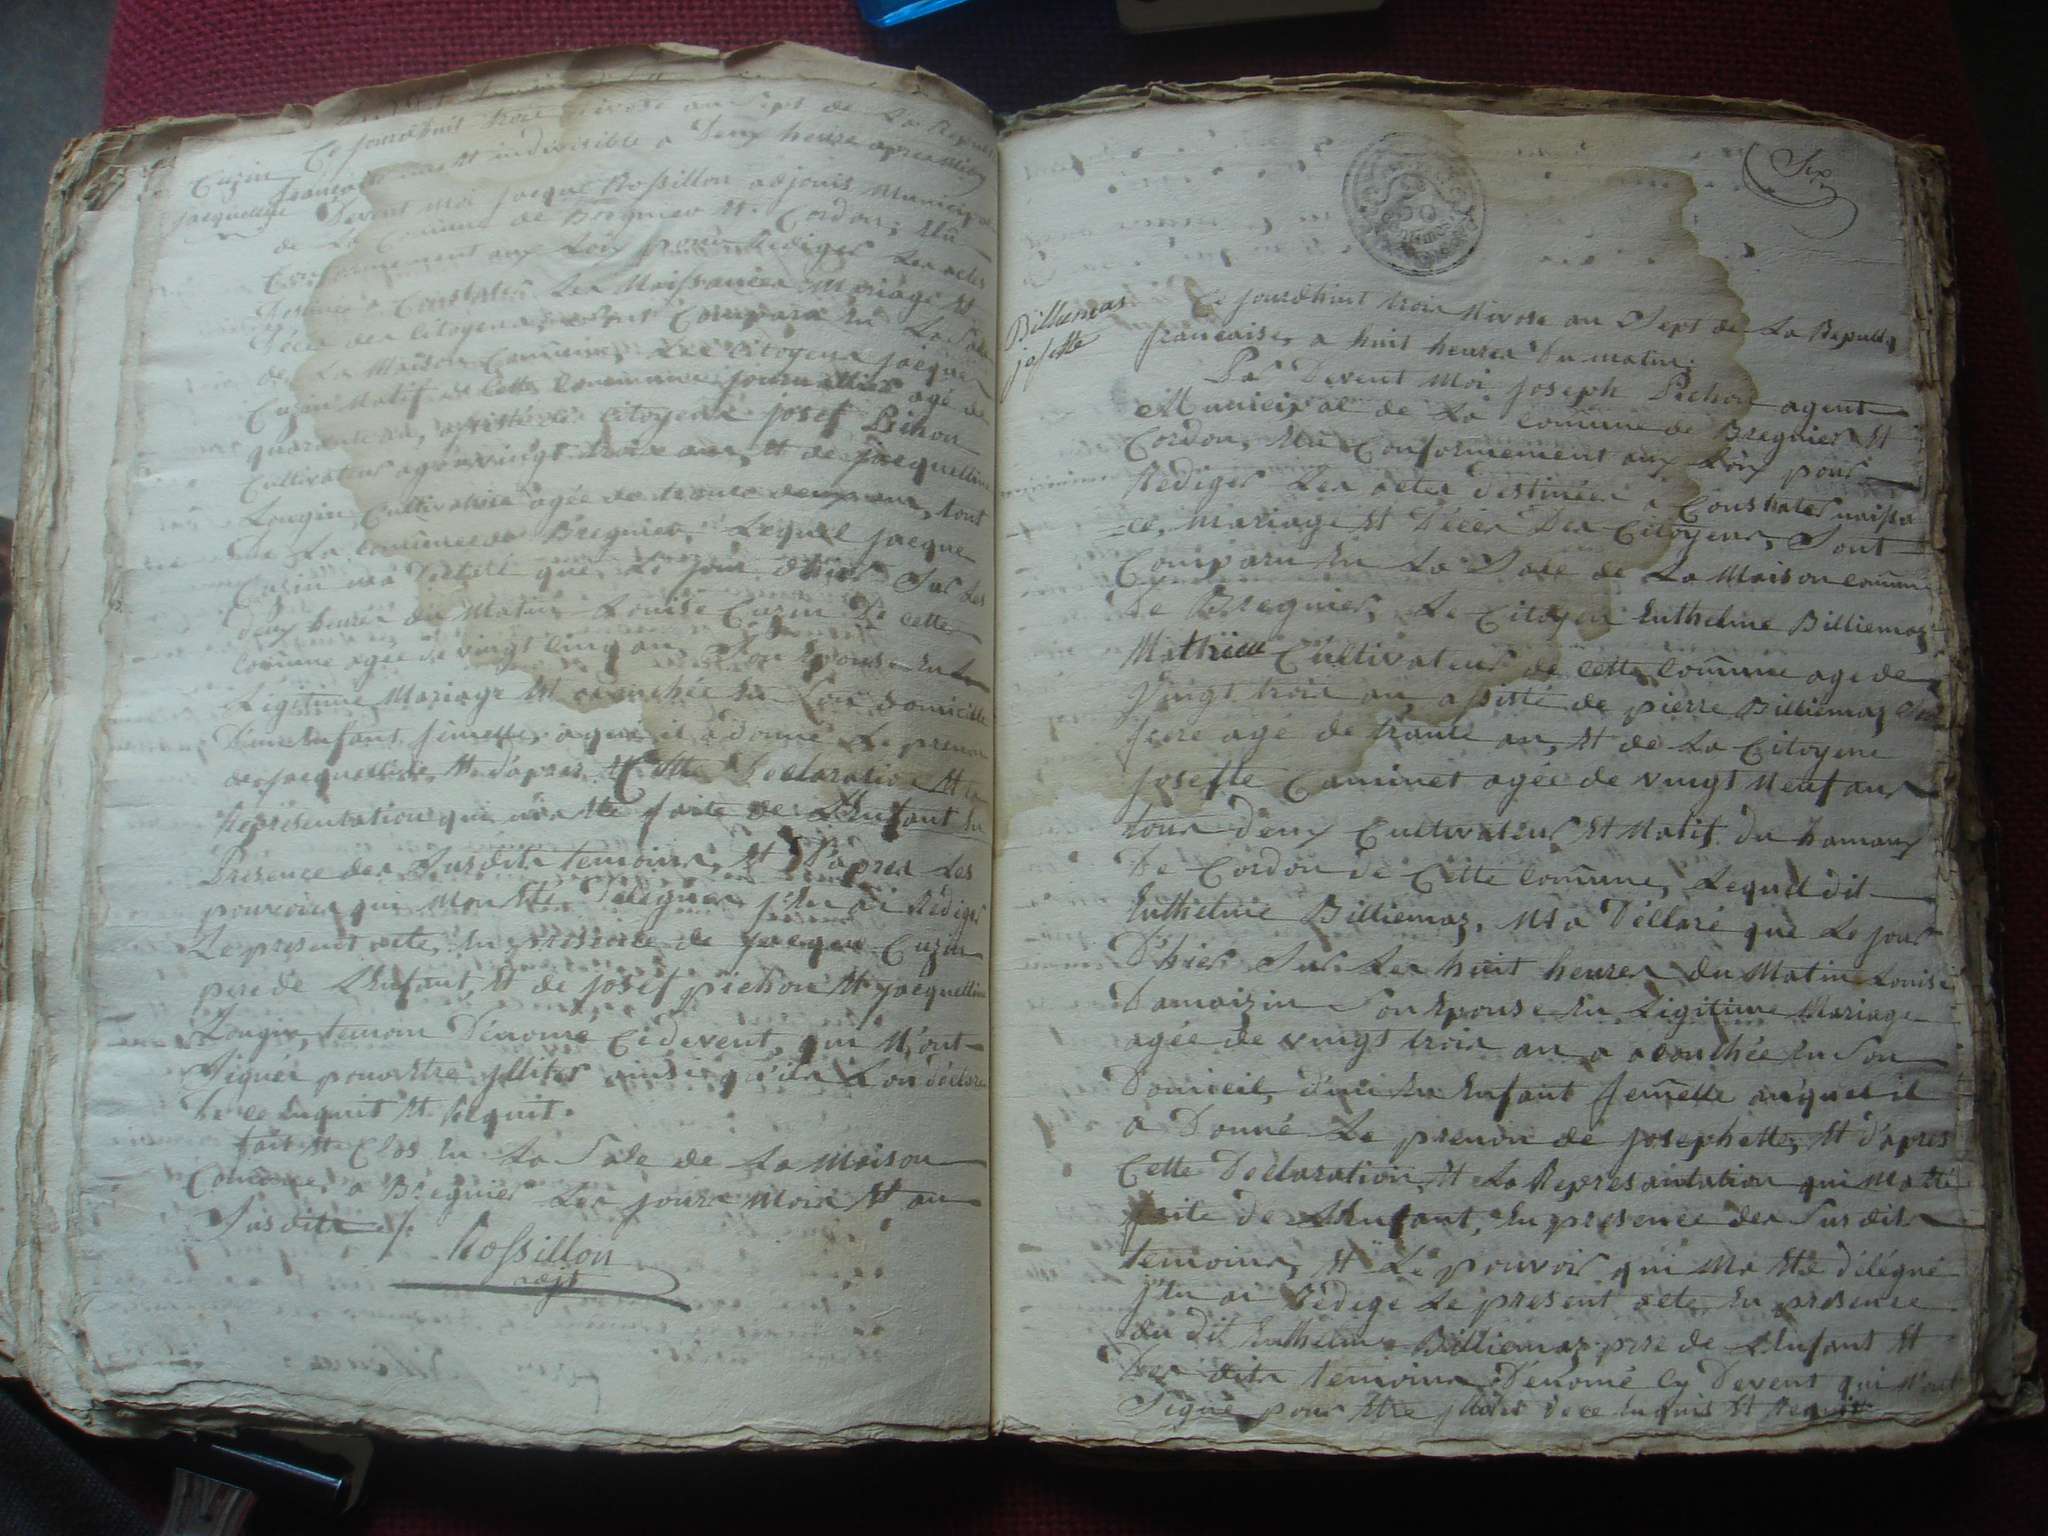 Cuzin
jacqueline
Ce jourdhuit trois nivose an Sept de La Republ
française une et indivisible a Deux heure apres midy
Devent Moi jacque Rossillon adjoint Municipal
de La Commune de Bregnier et Cordon, Elu
Conformement aux Loix pour Rediger Les actes
destinés a Constater Les Naissances Mariage Et
Décés des Citoyens, Comparu En La Sale
de La Maison Commune, Le Citoyen jacque
Cuzin Natif de Cette Commune journallier agé de
quarante an, assisté de Citoyens josef Pichon
Cultivateur agé vingt trois ans, Et de jacquelline
Longin Cultivatrice agée de trante deux ans, tout
de La Commune de Bregnier, Lequel jacque
Cuzin ma Declaré que Le jour d'hier Sur Les
deux heures du Matin Louise Cuzin De cette
Comune agée de vingt Cinq an Son Epouse En
Legitime Mariage Est acouchée En Son Domicille
D'une Enfant femelle, a que il a donné Le prenon
de jacquelline, Et d'apres Cette Declaration Et la
Représentation qui ma Eté faite de L'Enfant En
Presence des Susdits temoins, Et D'apres Les
pouvoirs qui Mon Eté Délégués j'En ai Rédigé
Le present acte, En presence de jacque Cuzin
pere de L'Enfant, Et de josef pichon Et jacquelline
Longin, temoin Dénomé Cidevent, qui N'ont
Signés pour Etre illiter ainsi qu'ils L'on déclaré
De ce Enquit Et Requit.
fait Et Clos En La Sale de La Maison
Comune, a Bregnier Les jours Mois Et an
Susdits /.
Rossillon
adjt
Six
50
Centimes
Billiemas
josette
Ce jourdhuit trois Nivose an Sept de La Republ.
française, a huit heures du matin.
Par Devent Moi joseph Pichon agent
Municipal de La Comune de Bregnier Et
Cordon, Elu Conformement aux Loix pour
Rediger Les actes destinées a Constater naissa
=ce, Mariage Et Décés Des Citoyens, Sont
Comparu En La Sale de La Maison Comune
de Bregnier, Le Citoyen Enthelme Billiemaz
Mathieu Cultivateur de cette Comune age de
Vingt trois an, assisté de pierre Billiemaz Son
frere agé de trante an, Et de La Citoyene
Josette Caminet agée de vingt Neuf ans
tous deux Cultivateur Et Natif du hamaux
De Cordon de Cette Comune, Lequel dit
Enthelme Billiemaz, M'a Déllaré que Le jour
D'hier Sur Les huit heures du Matin Louise
Damaizin Son Epouse En Legitime Mariage
agée de vingt trois an a acouchée En Son
Domicil, d'un En Enfant femelle auquel il
a Donné Le prenon de josephette, Et d'apres
Cette Déclaration, Et La Représantation qui Ma Eté
faite de L'Enfant, En presence des Susdits
temoins, Et Le pouvoir qui Ma Eté délégué
j'En ai Rédege Le present acte, En presence
du dit Enthelme Billiemaz pere de L'Enfant Et
Des dits temoins Dénomé Cy Devent qui N'ont
Signé pour Etre illiter De ce Enquis Et Requis